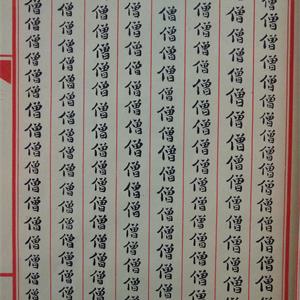 僧僧僧僧僧僧僧僧僧僧僧僧僧僧僧僧
僧僧僧僧僧僧僧僧僧僧僧僧僧僧僧僧
僧僧僧僧僧僧僧僧僧僧僧僧僧僧僧僧
僧僧僧僧僧僧僧僧僧僧僧僧僧僧僧僧
僧僧僧僧僧僧僧僧僧僧僧僧僧僧僧僧
僧僧僧僧僧僧僧僧僧僧僧僧僧僧僧僧
僧僧僧僧僧僧僧僧僧僧僧僧僧僧僧僧
僧僧僧僧僧僧僧僧僧僧僧僧僧僧僧僧